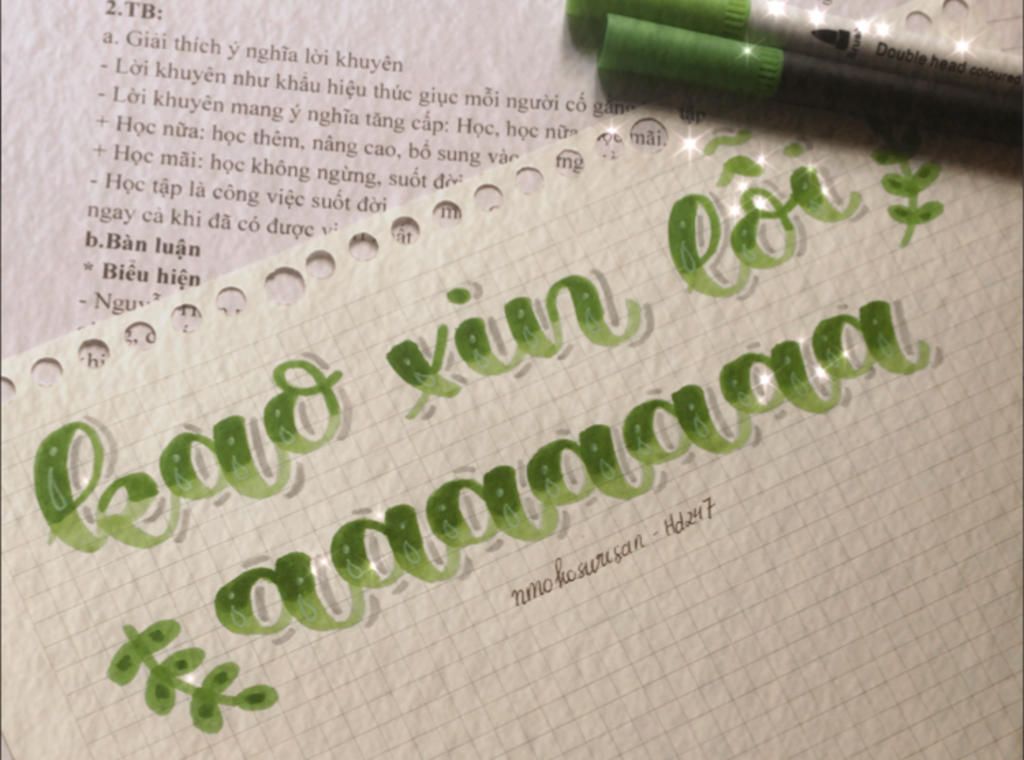 2.TB:
a. Giải thích ý nghĩa lời khuyên
- Lời khuyên như khẩu hiệu thúc giục mỗi người cố gắng tập
- Lời khuyên mang ý nghĩa tăng cấp: Học, học nữa học mãi.
+ Học nữa: học thêm, nâng cao, bổ sung
+ Học mãi: học không ngừng, suốt đời
- Học tập là công việc suốt đời
ngay cả khi đã có được
b.Bàn luận
* Biểu hiện
kao xin lỗi
aaaaaaa
nmokosurusan - Hd247
Double head coloured